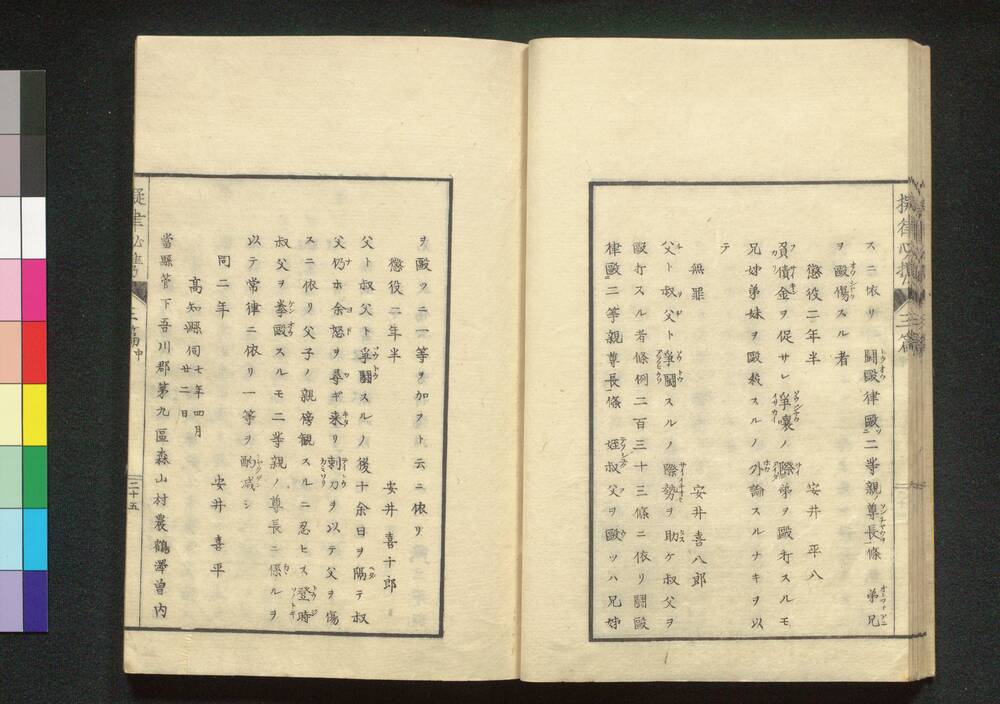 スニ依リ 鬪毆律毆二等親ノ尊長條 弟兄
ヲ毆傷スル者
懲役二年半 安井 平八
負債金ヲ促サレ爭嚷ノ際弟ヲ毆打スルモ
兄姉弟妹ヲ毆殺スルノ外論スルナキヲ以
テ
無罪 安井喜八郎
父ト叔父ト爭鬪スルノ際勢ヲ助ケ叔父ヲ
毆打スル者條例二百三十三條ニ依リ鬪毆
律毆二等親尊長條 姪叔父ヲ毆ツハ兄姉
ヲ毆ツニ一等ヲ加フト云ニ依リ
懲役二年半 安井 喜十郎
父ト叔父ト爭鬪スルノ後十余日ヲ隔テ叔
父仍ホ余怒ヲ尋ギ来リ剃刀ヲ以テ父ヲ傷
スニ依リ父子ノ親傍観スルニ忍ヒス登時
叔父ヲ拳毆スルモ二等親ノ尊長ニ係ルヲ
以テ常律ニ依リ一等ヲ酌减シ
同二年 安井 喜平
高知縣伺 七年四月廿二日
當縣管下吾川郡第九區森山村農鶴澤曽内
三篇
三篇中
二十五